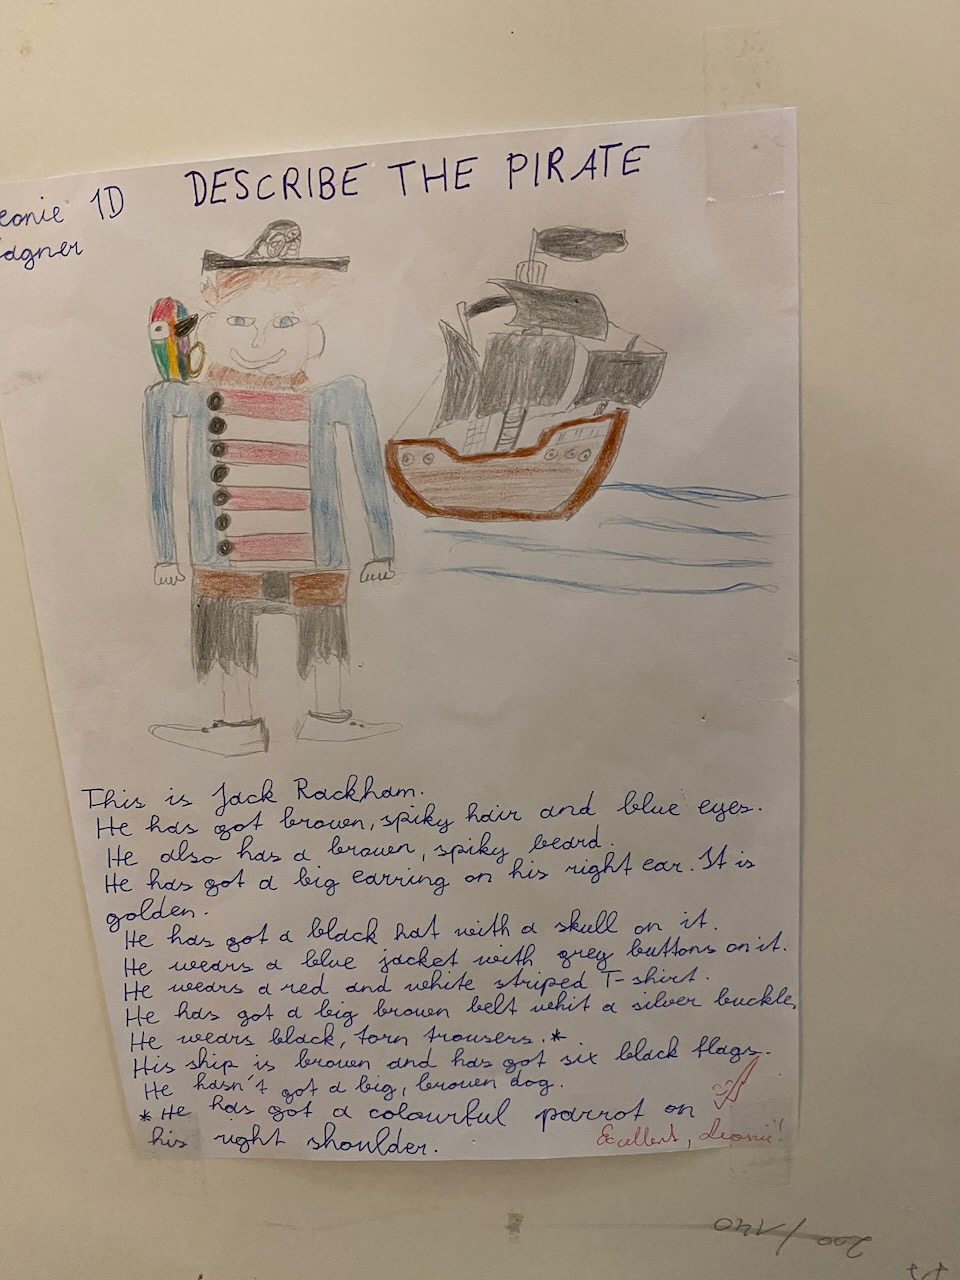 DESCRIBE THE PIRATE
eonie 1D
agner
This is Jack Rackham.
He has got brown, spiky hair and blue eyes.
He also has a brown, spiky beard.
He has got a big earring on his right ear. It is
golden.
He has got a black hat with a skull on it.
He wears a blue jacket with grey buttons on it.
He wears a red and white striped T-shirt.
He has got a big brown belt whit a silver buckle,
He wears black, torn trousers.*
His ship is brown and has got six black flags.
He hasn't got a big, brown dog.
*He has got a colourful parrot on
his right shoulder.
Excellent, Leonie!
200/140